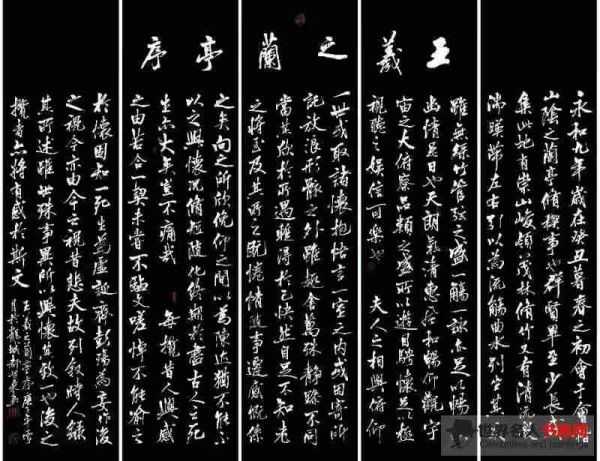 王羲之蘭亭序
永和九年歲在癸丑暮春之初會于會稽
山陰之蘭亭脩禊事也群賢畢至少長咸
集此地有崇山峻領茂林脩竹又有清流激
湍暎帶左右引以為流觴曲水列坐其次
雖無絲竹管弦之盛一觴一詠亦足以暢叙
幽情是日也天朗氣清惠風和暢仰觀宇
宙之大俯察品類之盛所以遊目騁懷足以極
視聽之娛信可樂也 夫人之相與俯仰
一世或取諸懷抱悟言一室之內或因寄所
託放浪形骸之外雖趣舍萬殊靜躁不同
當其欣於所遇暫得於己快然自足不知老
之將至及其所之既惓情隨事遷感慨係
之矣向之所欣俛仰之間以為陳迹猶不能不
以之興懷況脩短隨化終期於盡古人云死
生亦大矣豈不痛哉 每攬昔人興感
之由若合一契未嘗不臨文嗟悼不能喻之
於懷固知一死生為虛誕齊彭殤為妄作後
之視今亦由今之視昔悲夫故列叙時人錄
其所述雖世殊事異所以興懷其致一也後之
攬者亦將有感於斯文
世界名人书画网